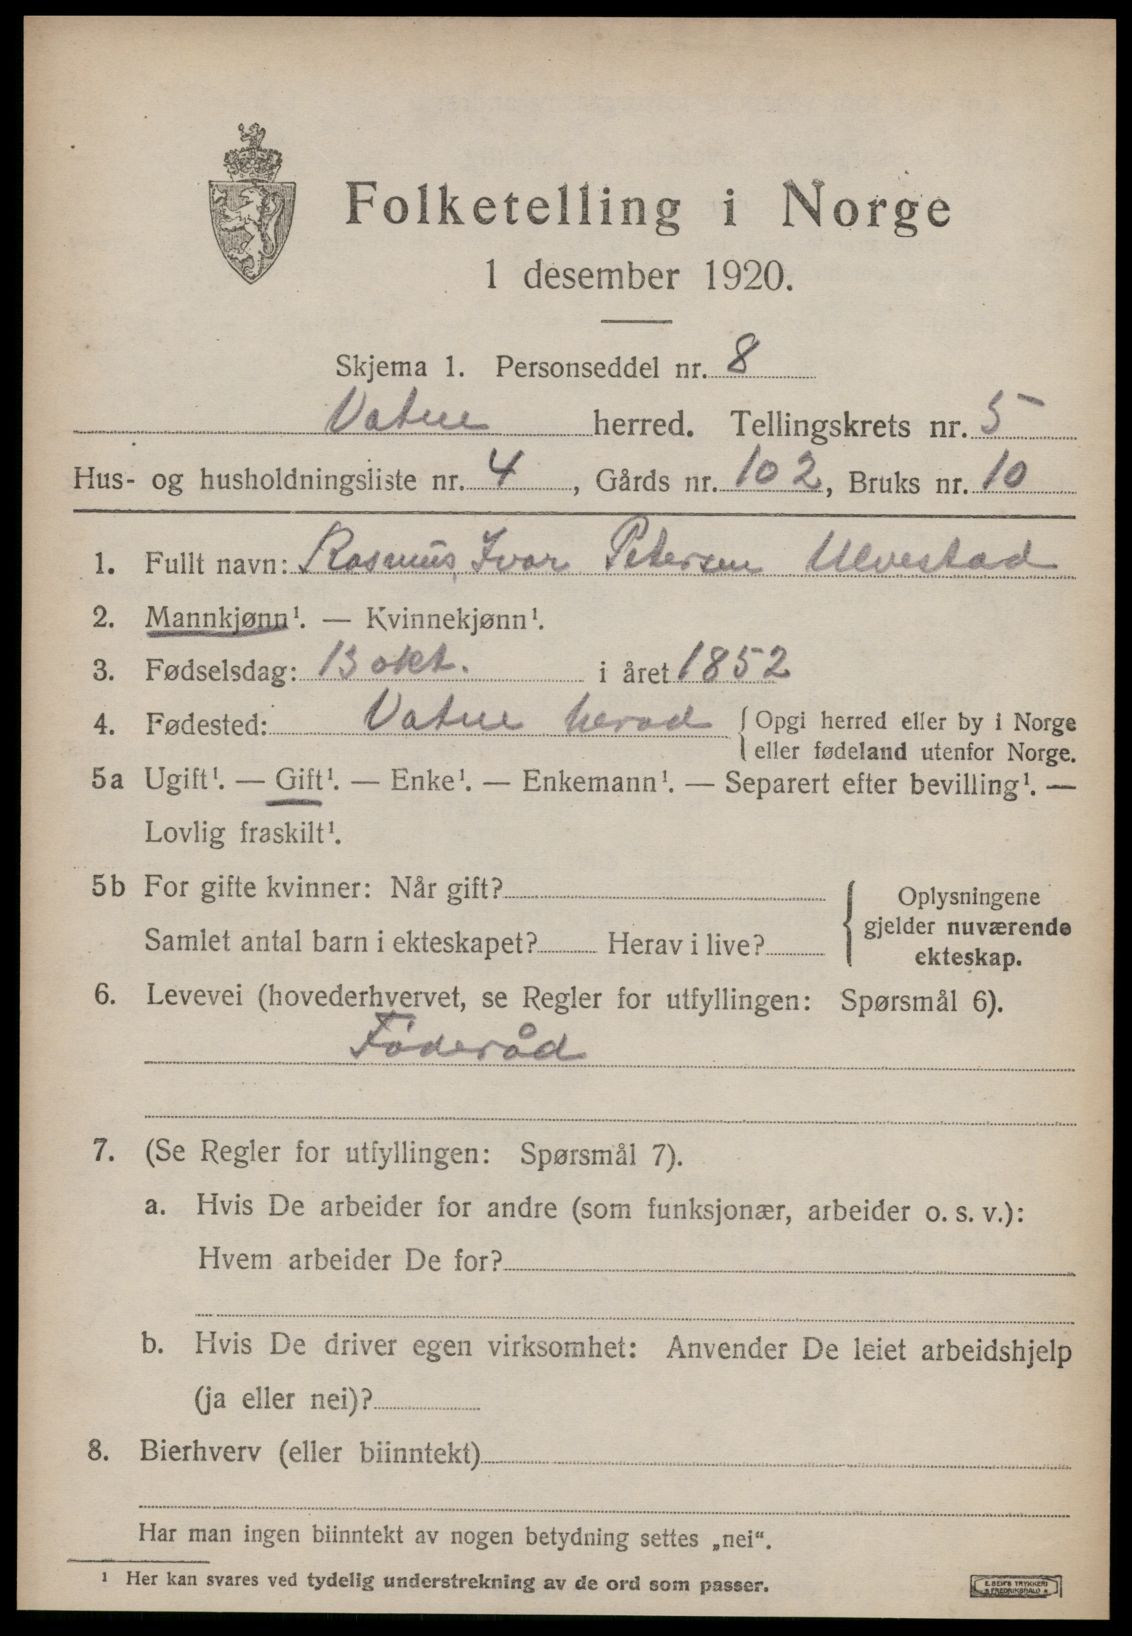 Folketelling i Norge
1 desember 1920.
Skjema 1. Personseddel nr. 8
Vatne herred. Tellingskrets nr. 5
Hus- og husholdningsliste nr. 4, Gårds nr. 102, Bruks nr. 10
1. Fullt navn: Rasmus Ivar Petersen Ulvestad
2. Mannkjønn¹. — Kvinnekjønn¹.
3. Fødselsdag: 13 okt. i året 1852
4. Fødested: Vatne herad { Opgi herred eller by i Norge
eller fødeland utenfor Norge.
5a Ugift¹. — Gift¹. — Enke¹. — Enkemann¹. — Separert efter bevilling¹. —
Lovlig fraskilt¹.
5b For gifte kvinner: Når gift?
Samlet antal barn i ekteskapet? Herav i live?
{ Oplysningene
gjelder nuværende
ekteskap.
6. Levevei (hovederhvervet, se Regler for utfyllingen: Spørsmål 6).
Føderåd
7. (Se Regler for utfyllingen: Spørsmål 7).
a. Hvis De arbeider for andre (som funksjonær, arbeider o. s. v.):
Hvem arbeider De for?
b. Hvis De driver egen virksomhet: Anvender De leiet arbeidshjelp
(ja eller nei)?
8. Bierhverv (eller biinntekt)
Har man ingen biinntekt av nogen betydning settes „nei“.
¹ Her kan svares ved tydelig understrekning av de ord som passer.
E. SEM'S TRYKKERI
FREDRIKSHALD